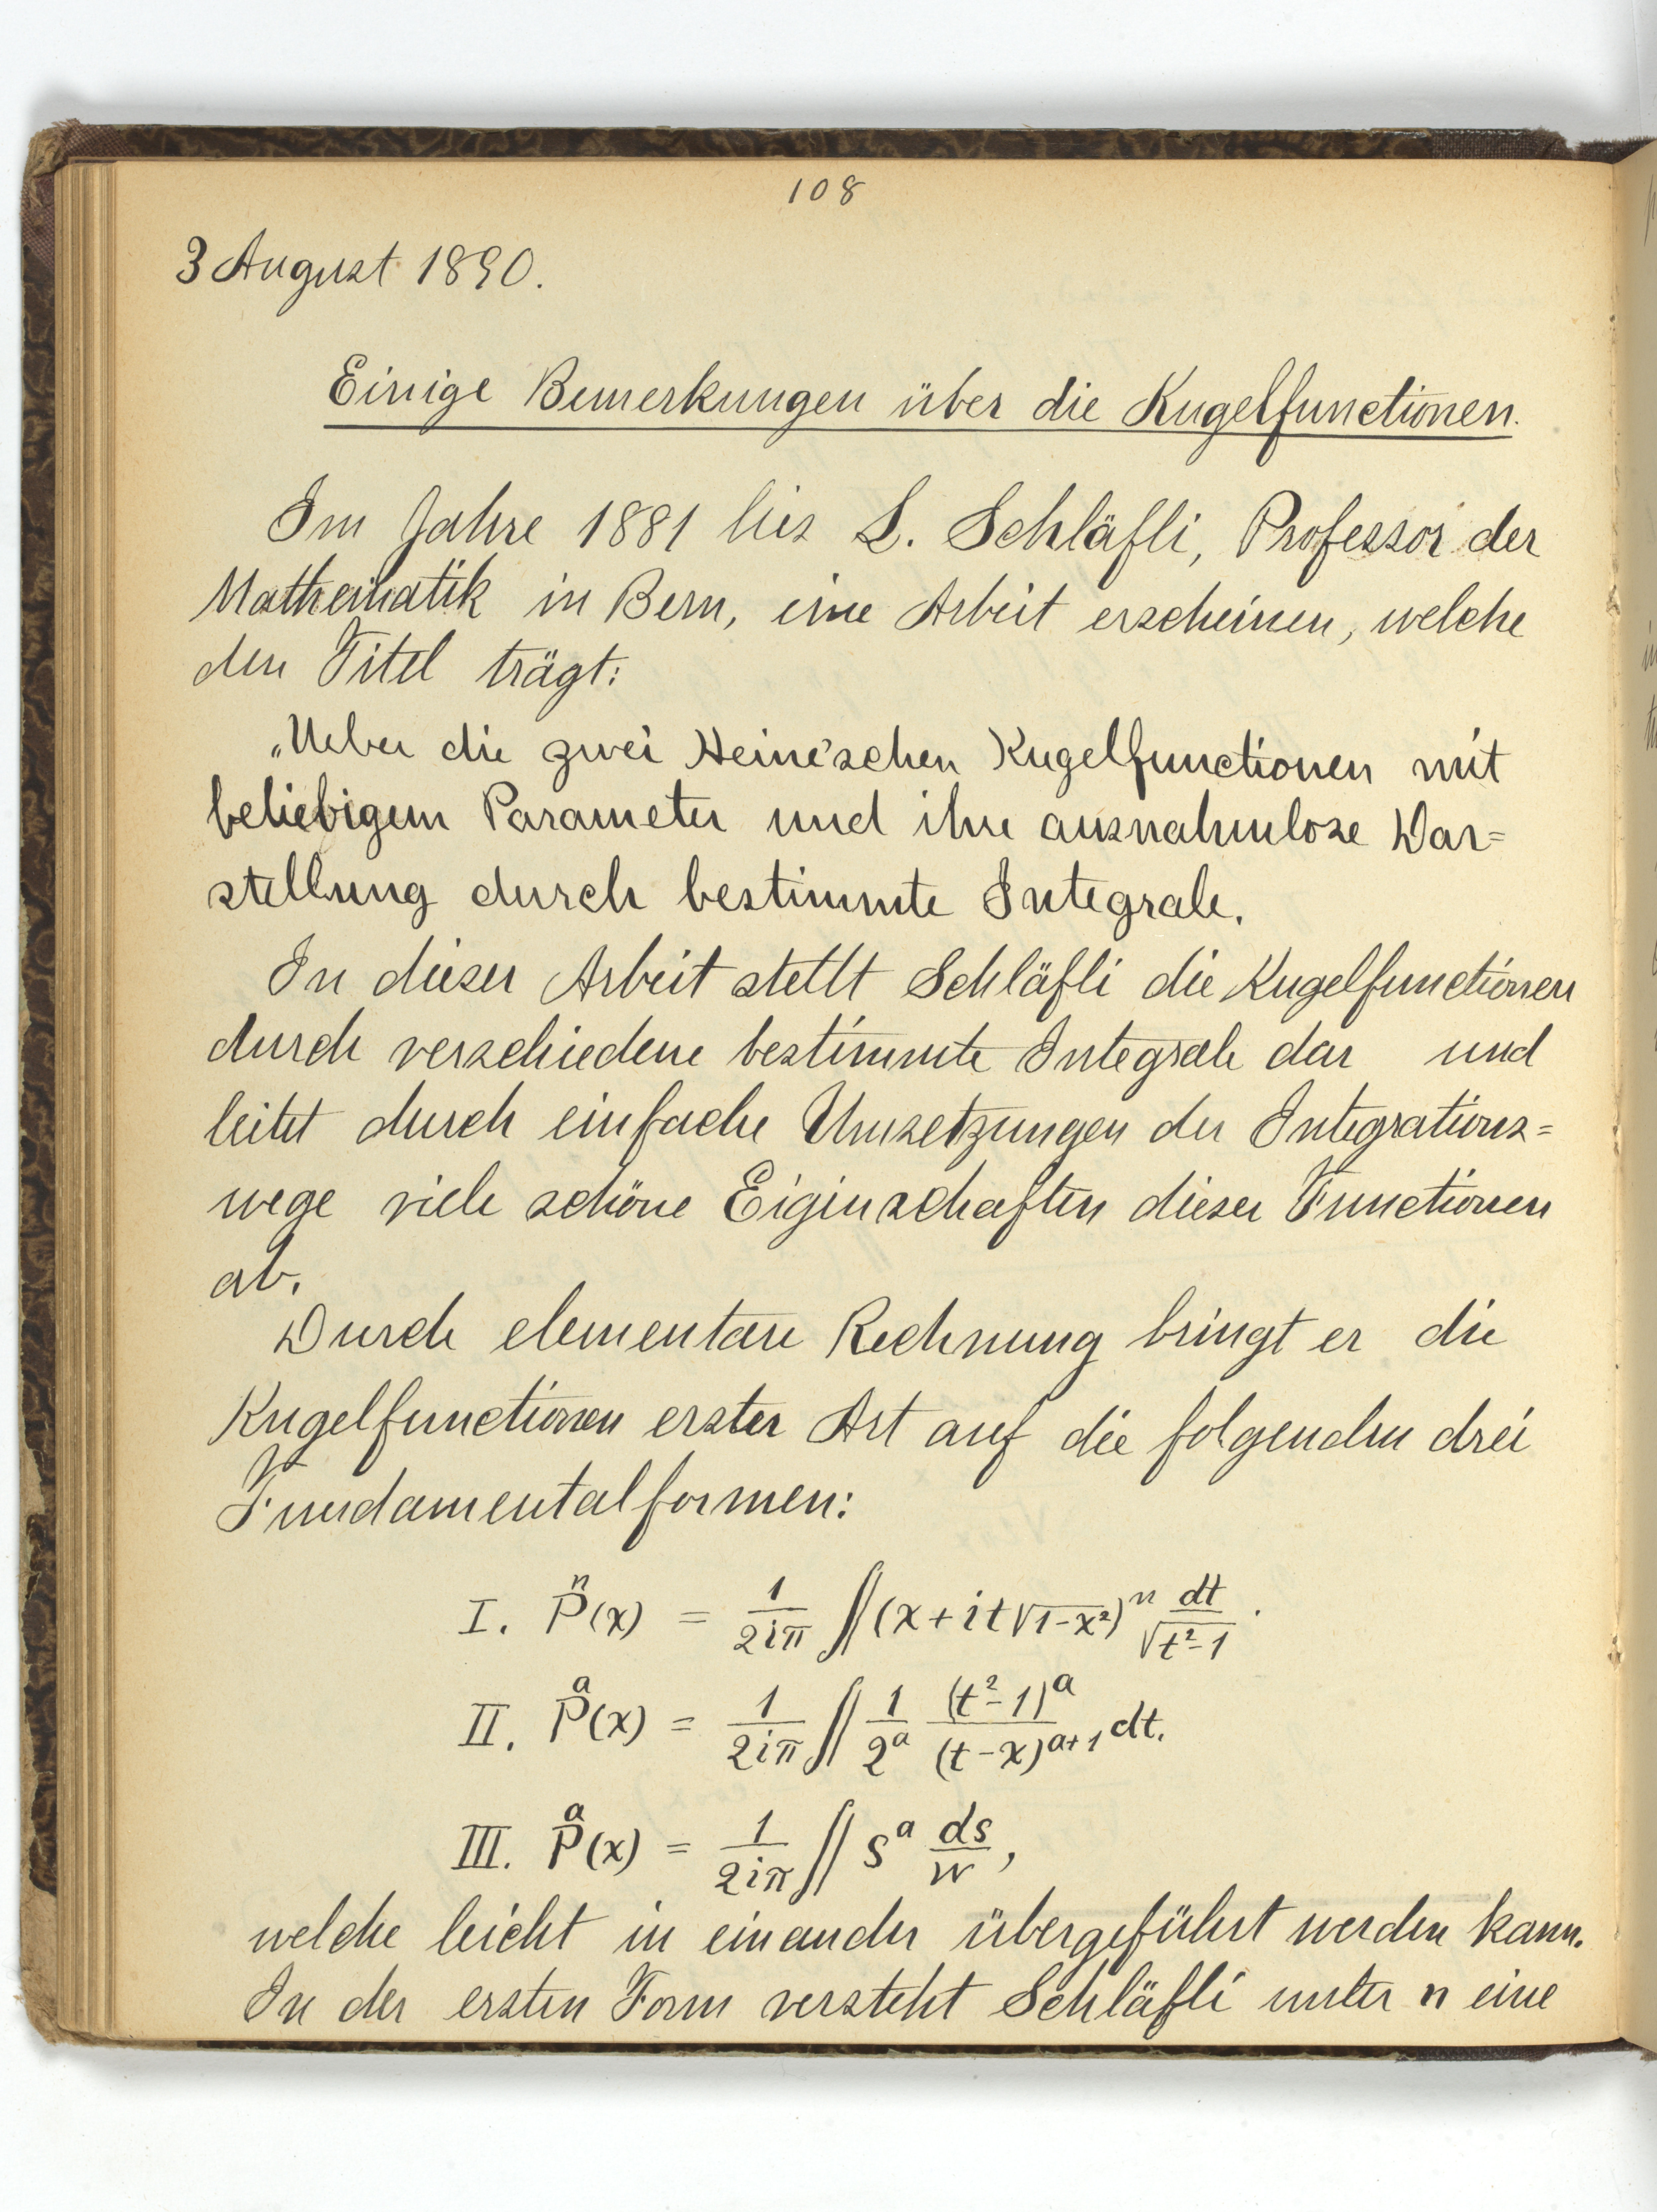 108
3 August 1890.
Einige Bemerkungen über die Kugelfunctionen.
Im Jahre 1881 lies L. Schläfli, Professor der
Mathematik in Bern, eine Arbeit erscheinen, welche
den Titel trägt:
„Ueber die zwei Heine'schen Kugelfunctionen mit
beliebigem Parameter und ihre ausnahmlose Dar=
stellung durch bestimmte Integrale.
In dieser Arbeit stellt Schläfli die Kugelfunctionen
durch verschiedene bestimmte Integrale dar und
leitet durch einfache Umsetzungen der Integrations=
wege viele schöne Eigenschaften dieser Functionen
ab.
Durch elementare Rechnung bringt er die
Kugelfunctionen erster Art auf die folgenden drei
Fundamentalformen:
I. P^n(x) = 1/(2iπ) ∫∫ (x + it√(1-x²))^n dt/√(t²-1).
II. P^a(x) = 1/(2iπ) ∫∫ 1/2^a (t²-1)^a/(t-x)^(a+1) dt.
III. P^a(x) = 1/(2iπ) ∫∫ s^a ds/w,
welche leicht in einander übergeführt werden kann.
In der ersten Form versteht Schläfli unter n eine